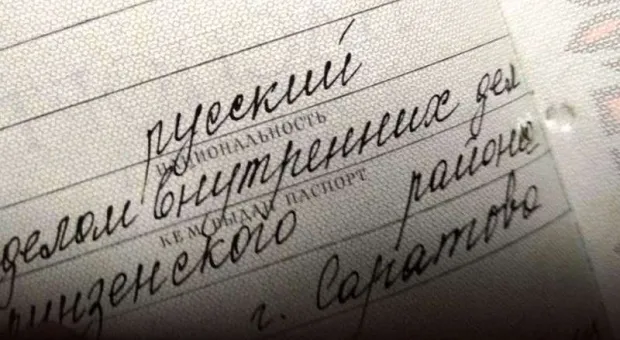 русский
НАЦИОНАЛЬНОСТЬ
делом внутренних дел
КЕМ ВЫДАН ПАСПОРТ
рунзенского района
г. Саратова